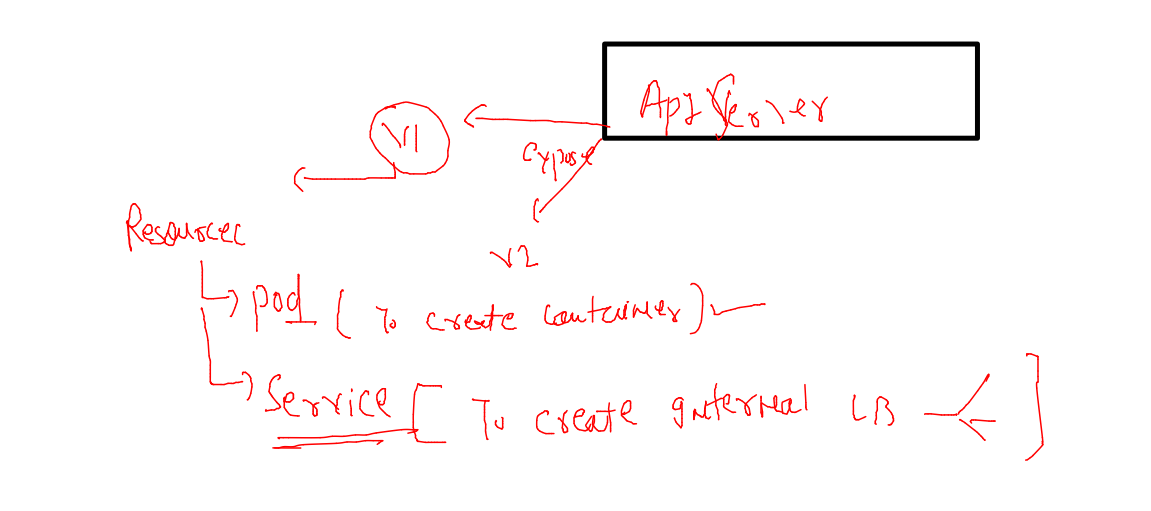 Api Server
V1
expose
Resources
V2
pod ( To create container )
Service [ To create internal LB ]